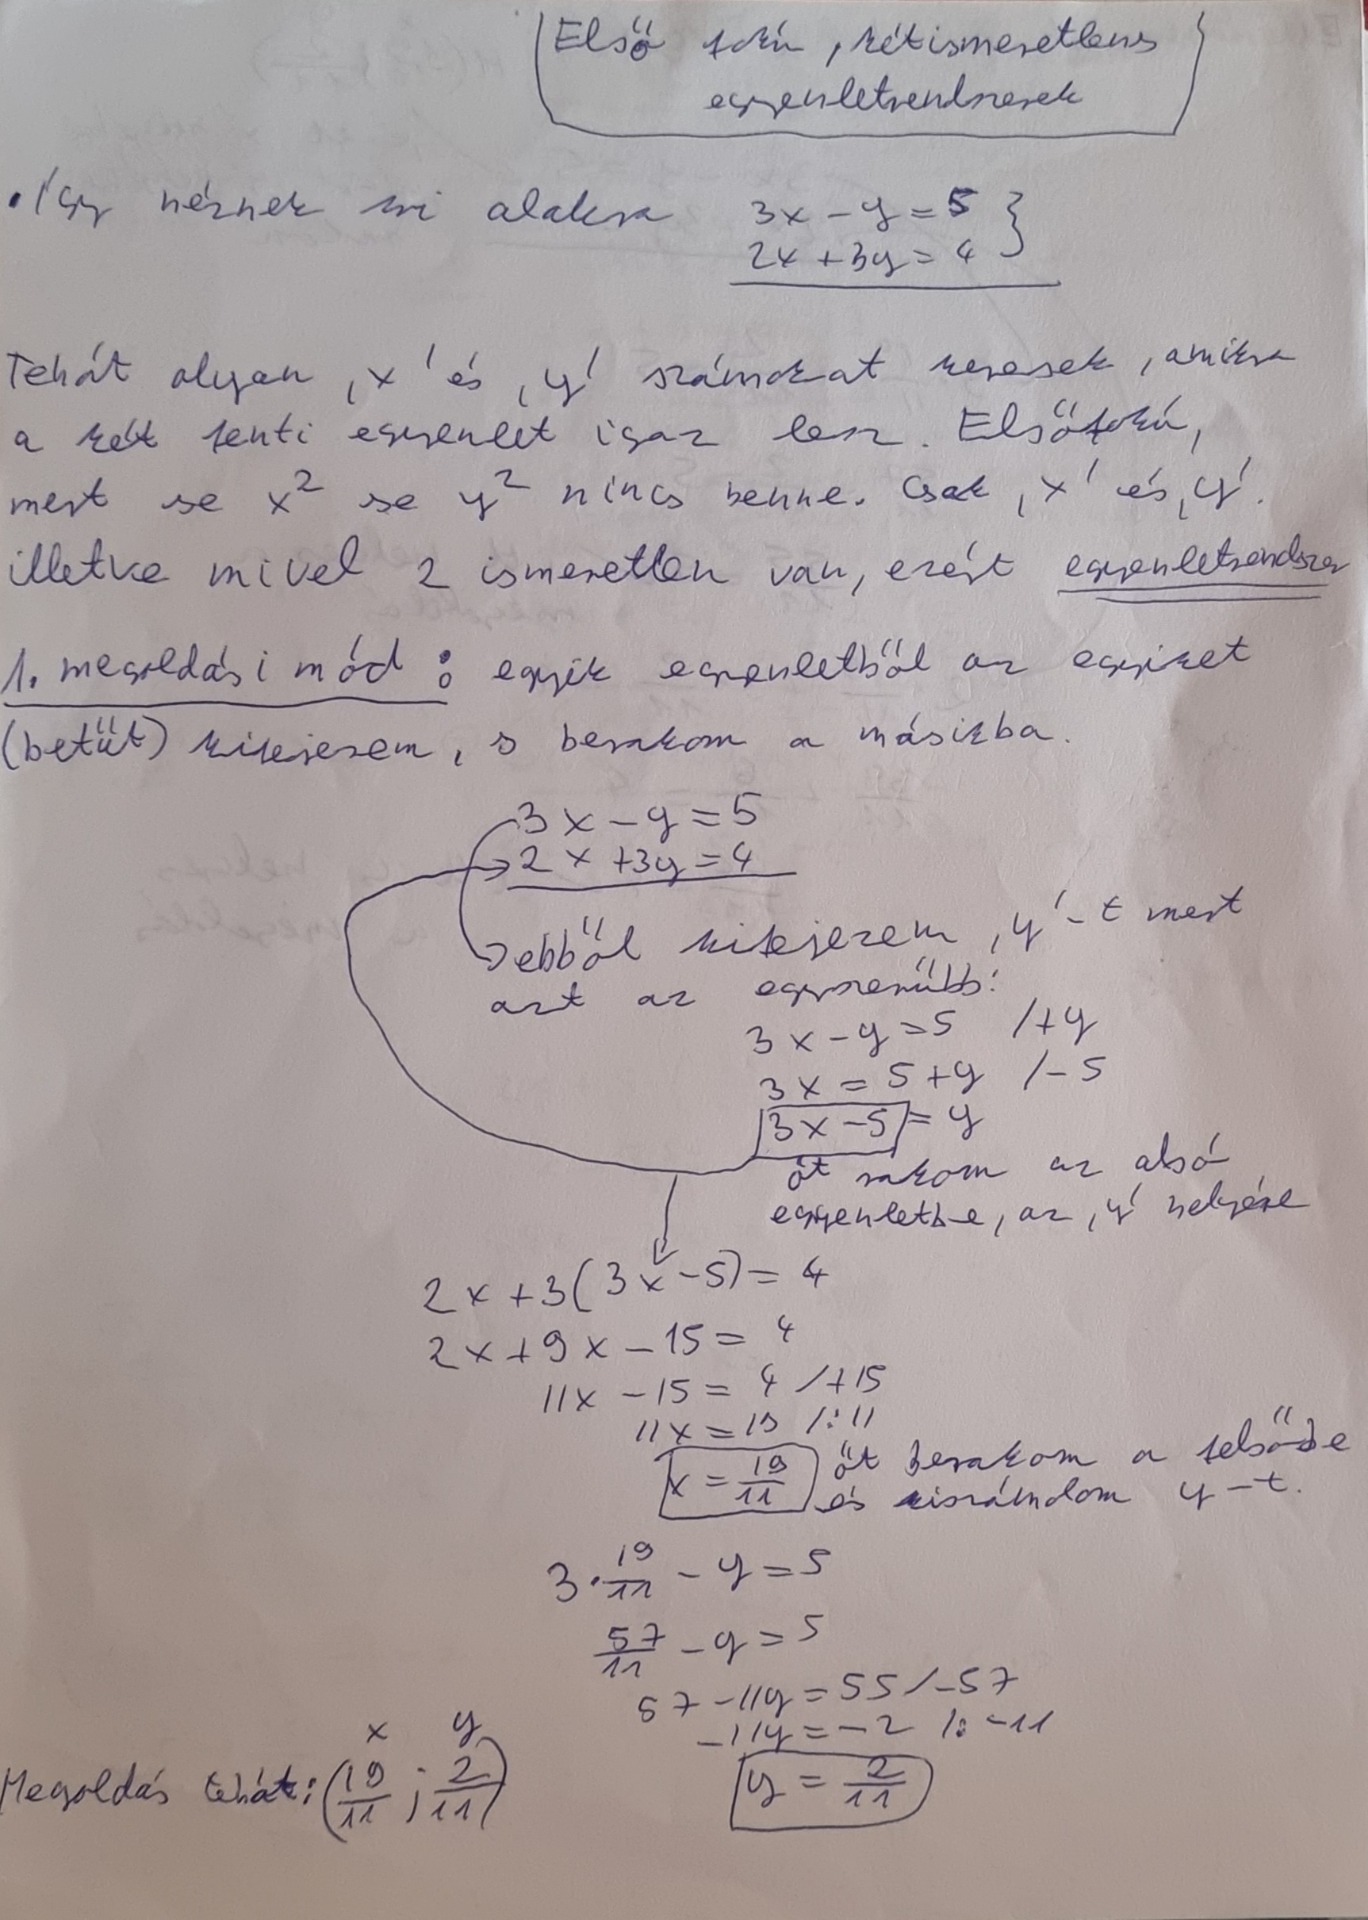 Első fokú, kétismeretlens
egyenletrendszerek
• Így néznek ki alakra 3x - y = 5 }
2x + 3y = 4
Tehát olyan ,x' és ,y' számokat keresek, amikre
a két fenti egyenlet igaz lesz. Elsőfokú,
mert se x² se y² nincs benne. Csak ,x' és ,y'.
illetve mivel 2 ismeretlen van, ezért egyenletrendszer
1. megoldási mód : egyik egyenletből az egyiket
(betűt) kifejezem, s berakom a másikba.
3x - y = 5
2x + 3y = 4
ebből kifejezem ,y'-t mert
azt az egyszerűbb:
3x - y = 5 /+y
3x = 5 + y /-5
3x - 5 = y
őt rakom az alsó
egyenletbe, az ,y' helyére
2x + 3(3x - 5) = 4
2x + 9x - 15 = 4
11x - 15 = 4 /+15
11x = 19 /:11
x = 19/11 őt berakom a felsőbe
és kiszámolom y-t.
3 · 19/11 - y = 5
57/11 - y = 5
57 - 11y = 55 /-57
-11y = -2 /: -11
y = 2/11
x y
Megoldás tehát: (19/11 ; 2/11)